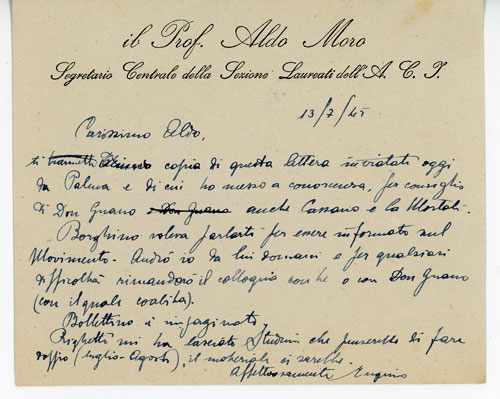 il Prof. Aldo Moro
Segretario Centrale della Sezione Laureati dell'A. C. I.
13/7/45
Carissimo Aldo,
ti trasmetto copia di questa lettera inviatati oggi
da Palma e di cui ho messo a conoscenza, per consiglio
di Don Guano e Don Guano anche Cassano e la Mortati.
Borghino voleva parlarti per essere informato sul
Movimento. Andrò io da lui domani e per qualsiasi
difficoltà rimanderò il colloquio con te o con Don Guano
(con il quale coabita).
Bollettino è impaginato.
Righetti mi ha lasciato Studium che penserebbe di fare
doppio (luglio-Agosto), il materiale ci sarebbe.
Affettuosamente Eugenio